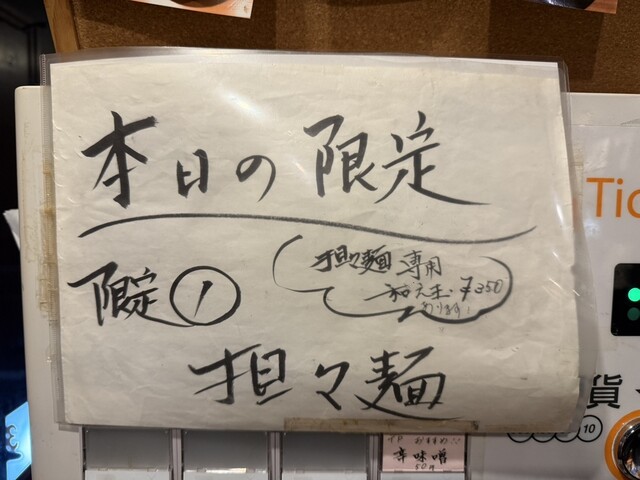 本日の限定
限定①
担々麺 専用
和え玉 ¥350
あります!
担々麺
Tic
貨
10
おすすめ
辛味噌
50円